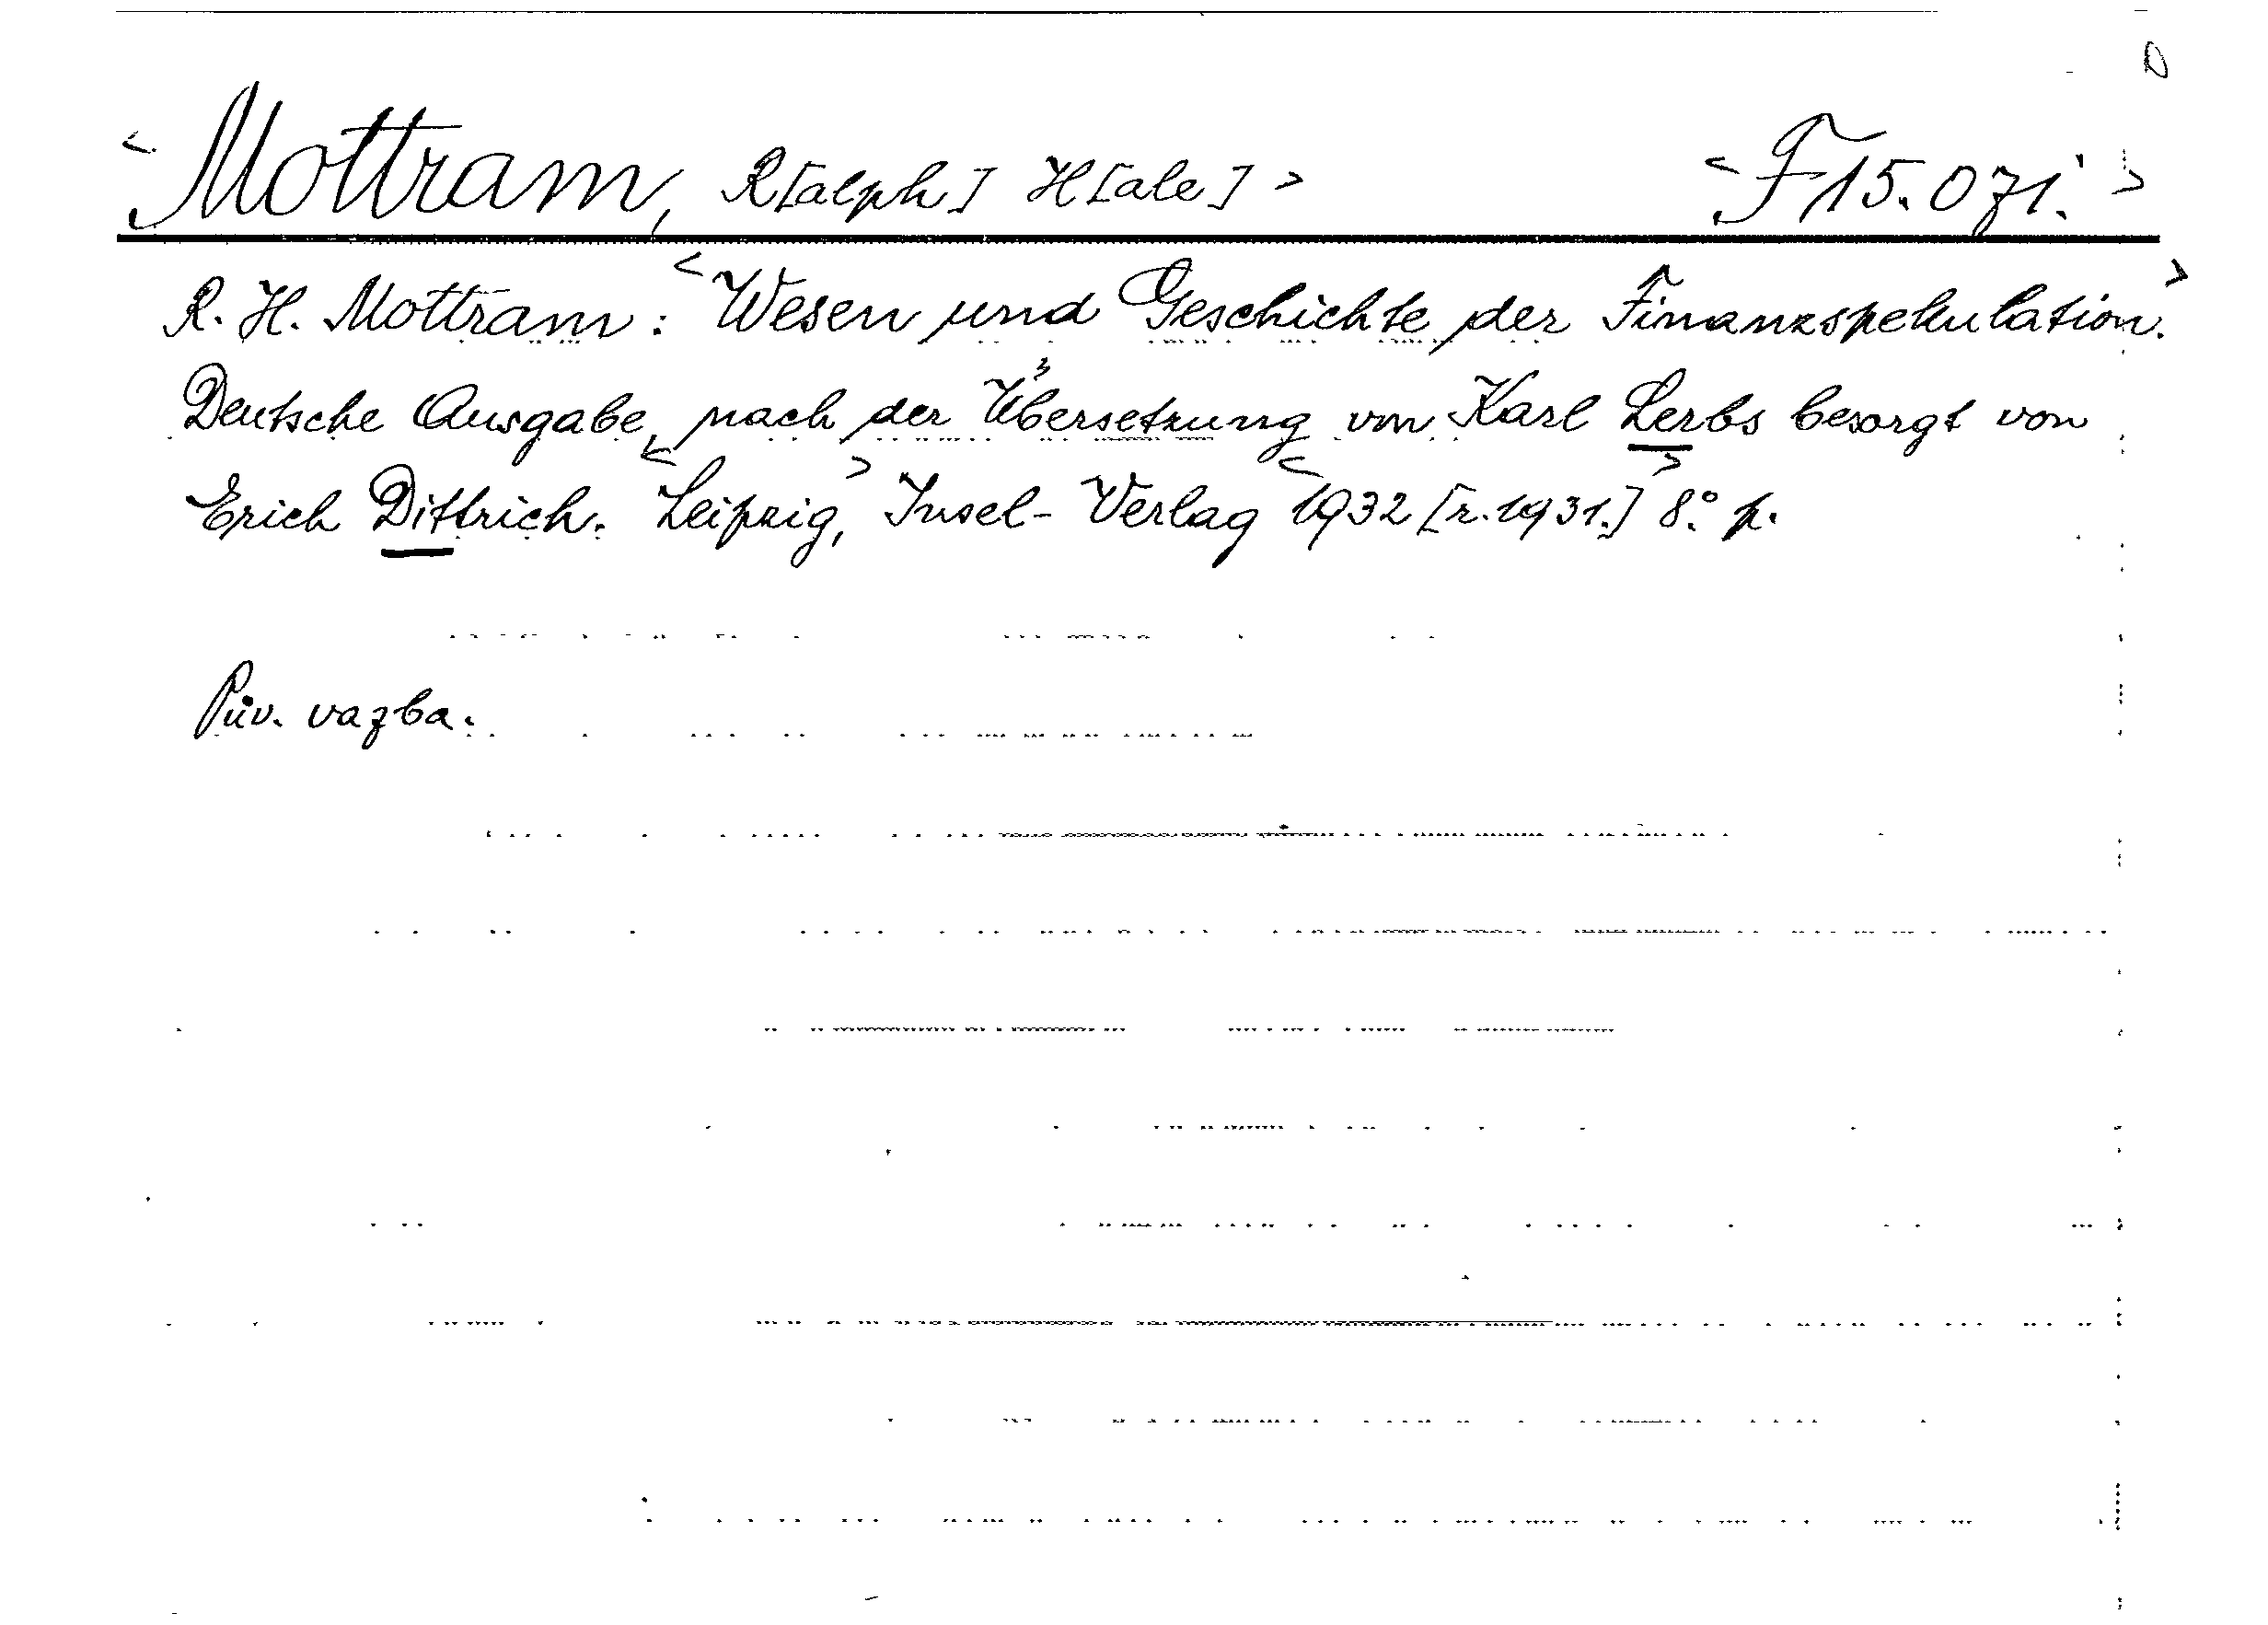 <Mottram, R[alph] H[ale]> <F 15.071.>
R. H. Mottram: <Wesen und Geschichte der Finanzspekulation.>
Deutsche Ausgabe, nach der Übersetzung von Karl Lerbs besorgt von
Erich Dittrich. <Leipzig,> Insel-Verlag <1932 [r. 1931.]> 8.° p.
Pův. vazba.